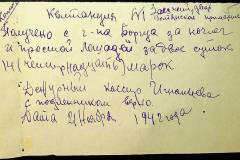 Квитанция №1
Получено с г-на Борща за ночлег
и простой лошадей за двое суток
14 (четырнадцать) марок
Дежурный кассир Игнатьева
С подлинником верно.
Дата 21 Ноября 1942 года